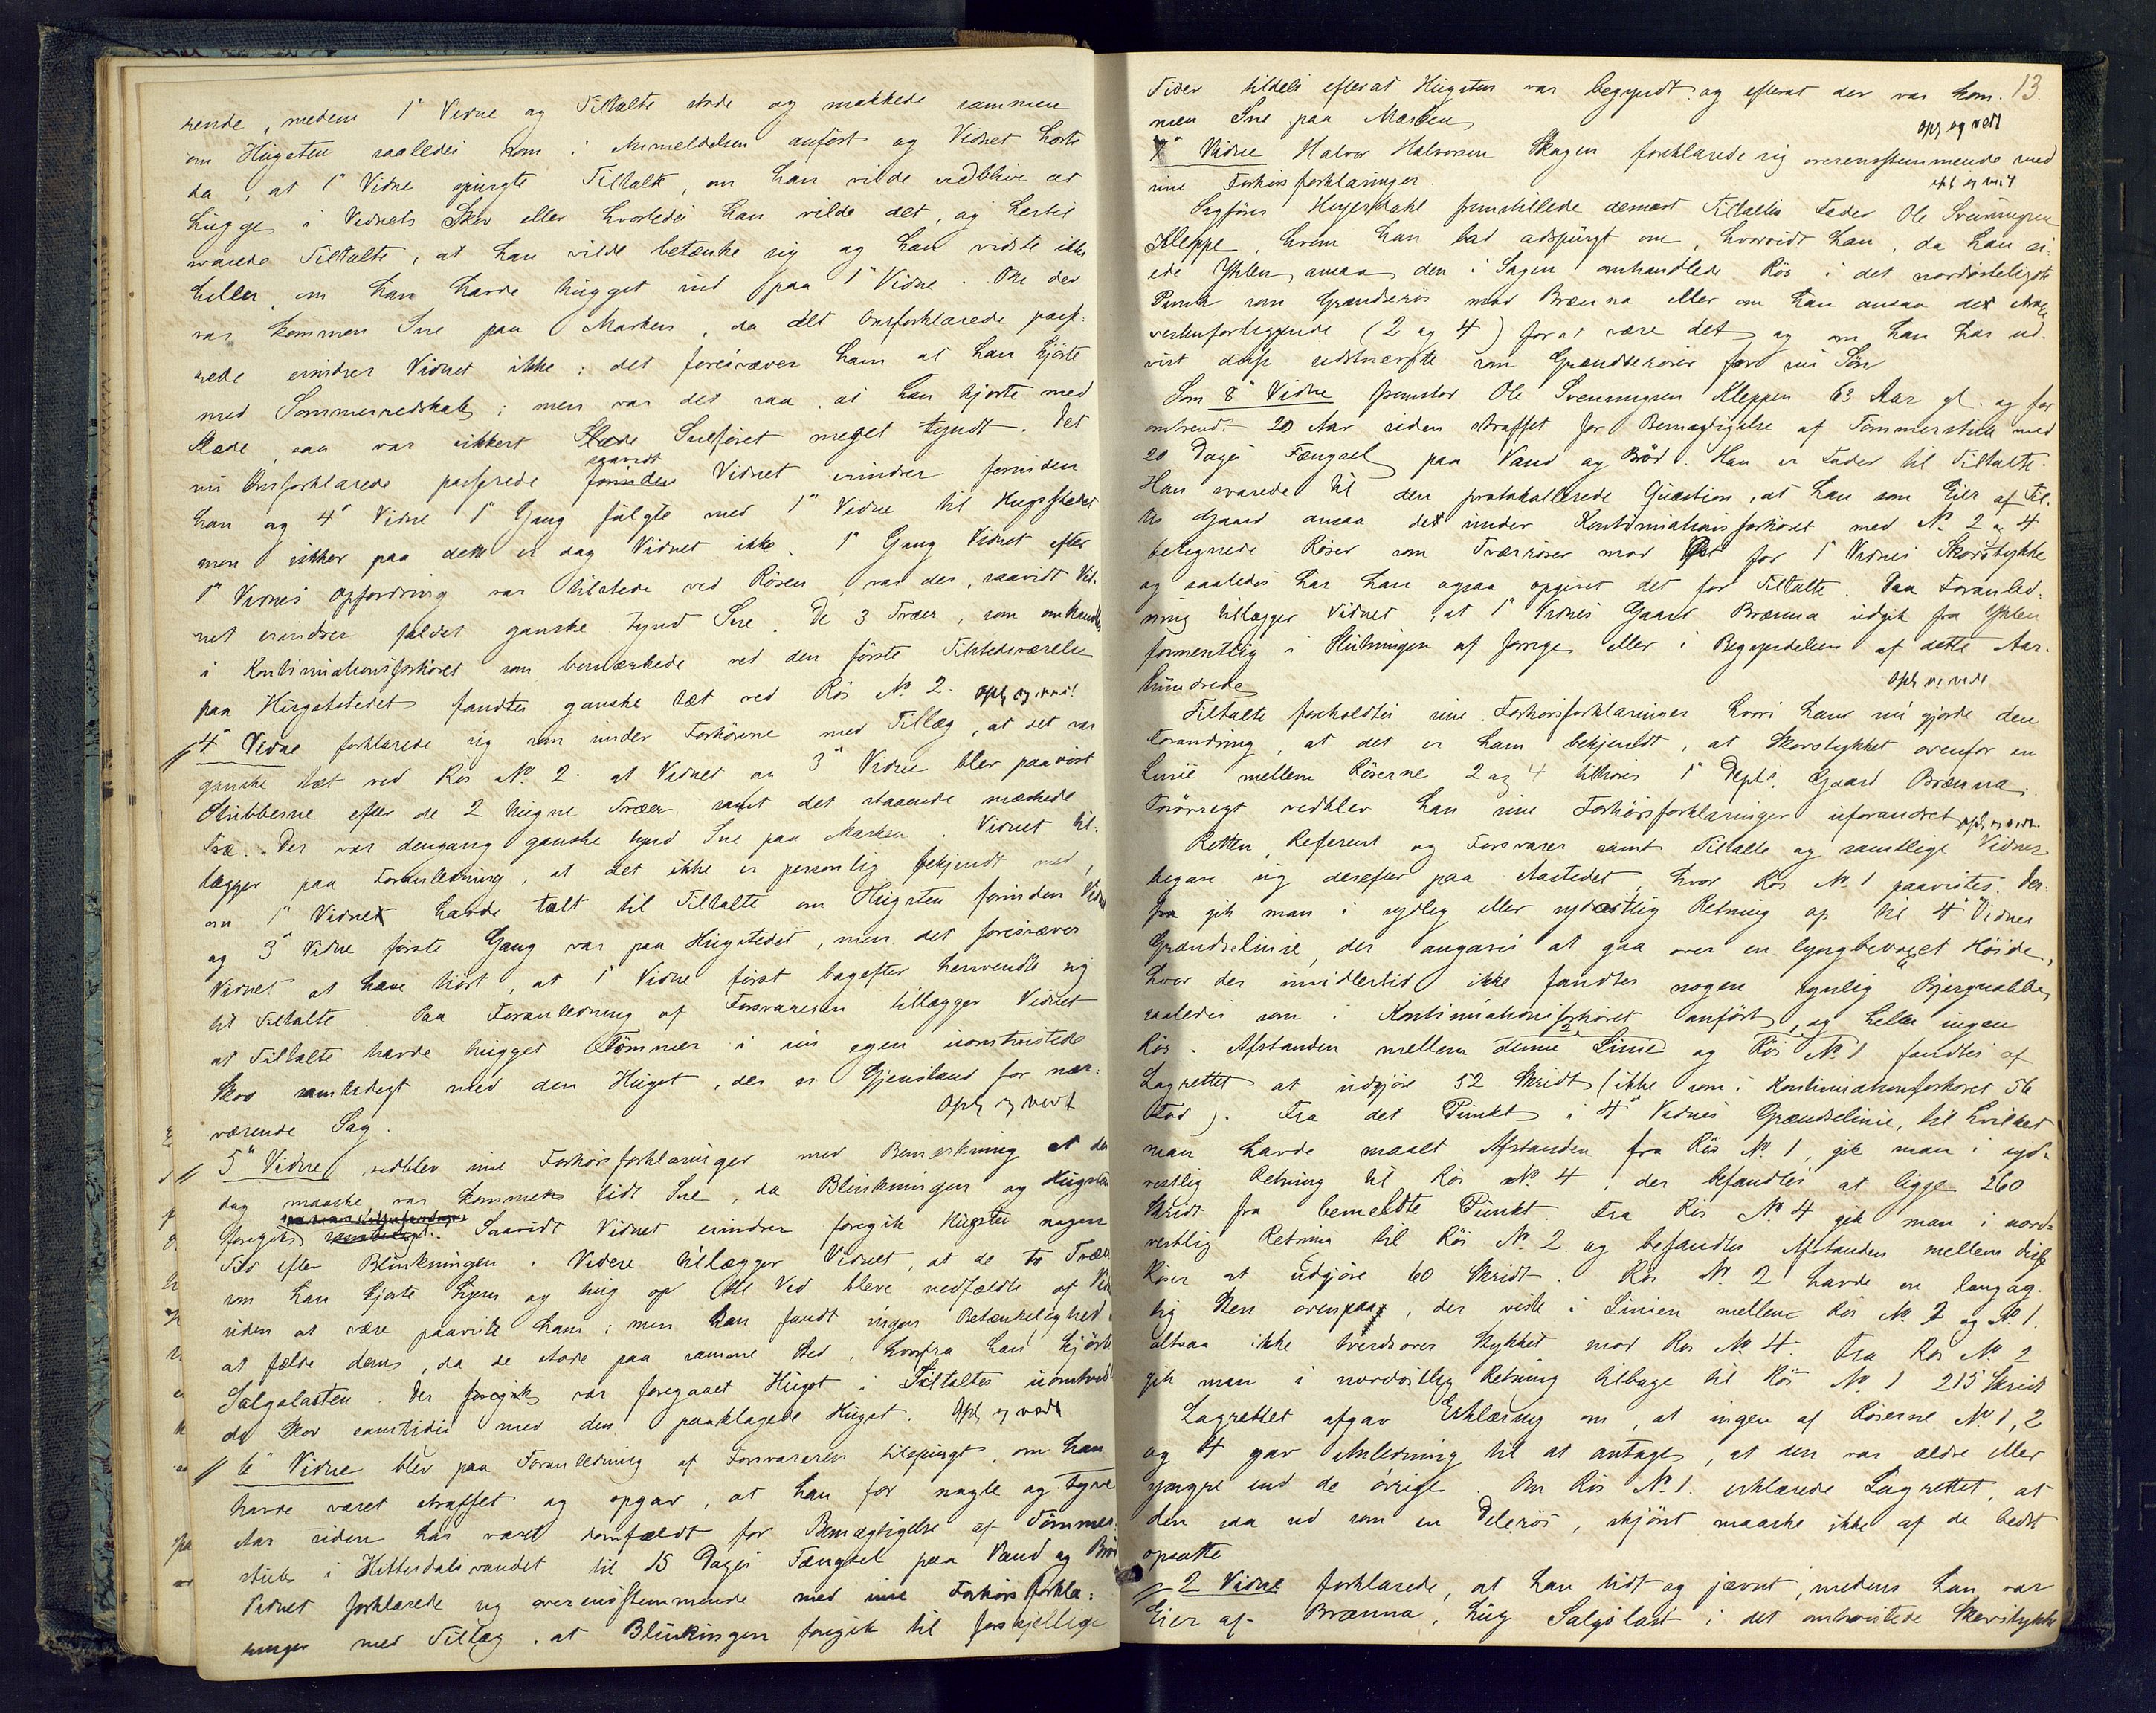 rende, medens 1ste Vidne og Tiltalte stode og snakkede sammen
om Hugsten saaledes som i Anmeldelsen anført og Vidnet hørte
da, at 1ste Vidne spurgte Tiltalte, om han vilde vedblive at
hugge i Vidnets Skov eller hvorledes han vilde det, og hertil
svarede Tiltalte, at han vilde betænke sig og han vidste ikke
heller, om han havde hugget ind paa 1ste Vidne. Om der
var kommen Sne paa Marken, da det Omforklarede pas-
serede erindrer Vidnet ikke; det foresvæver ham at han kjørte
med Sommerredskab; men var det saa, at han kjørte med
Slæde, saa var sikkert Snelføret meget tyndt. Det
nu Omforklarede passerede saavidt Vidnet erindrer forinden
han og 4de Vidne 1ste Gang fulgte med 1ste Vidne til Hugstfeltet
men sikker paa dette er dog Vidnet ikke. 1ste Gang Vidnet efter
1ste Vidnes Opfordring var tilstede ved Røsen, var der, saavidt Vid-
net erindrer faldet ganske tynd Sne. De 3 Træer, som omhandles
i Kontinuationsforhøret som bemærkede ved den første Tilstedeværelse
paa Hugststedet fandtes ganske tæt ved Røs No 2. Opl. og vedt.
4de Vidne forklarede sig som under Forhørene med Tillæg, at det var
ganske tæt ved Røs No 2. at Vidnet og 3die Vidne blev paavist
Stubberne efter de 2 hugne Træer samt det staaende mærkede
Træ. Der var dengang ganske tynd Sne paa Marken. Vidnet til-
lægger paa Foranledning, at det ikke er personlig bekjendt med,
om 1ste Vidne havde talt til Tiltalte om Hugsten forinden Vidnet
og 3die Vidne første Gang var paa Hugstedet, men det foresvæver
Vidnet at have hørt, at 1ste Vidne først bagefter henvendte sig
til Tiltalte. Paa Foranledning af Forsvareren tillægger Vidnet
at Tiltalte havde hugget Tømmer i sin egen uomtvistede
Skov samtidigt med den Hugst, der er Gjenstand for nær-
værende Sag. Opl. og vedt
5te Vidne vedblev sine Forhørsforklaringer med Bemerkning at der
dog maaske var kommen lidt Sne, da Blinkningen og Hugsten
foregik. Saavidt Vidnet erindrer foregik Hugsten nogen
Tid efter Blinkningen. Videre tillægger Vidnet, at de to Træer
som han kjørte hjem og hug op til Ved bleve nedfældte af Vidnet
uden at være paavist ham; men han fandt ingen Betænkelighed
at fælde dem, da de stode paa samme Sted, hvorfra han kjørte
Salgslasten. Der var foregaaet Hugst i Tiltaltes uomtvist-
de Skov samtidig med den paaklagede Hugst. Opl. og vedt
6te Vidne blev paa Foranledning af Forsvareren tilspurgt, om han
havde været straffet og opgav, at han for nogle og tyve
Aar siden har været domfældt for Bemægtigelse af Tømmer-
stik i Hitterdalsvandet til 15 Dages Fængsel paa Vand og Brød
Vidnet forklarede sig overensstemmende med sine Forhørsforkla-
ringer med Tillæg, at Blinkingen foregik til forskjellige
13
Tider tildels efterat Hugsten var begyndt og efterat der var kom-
men Sne paa Marken. Opl. og vedt
7de Vidne Halvor Halvorsen Skogen forklarede sig overensstemmende med
sine Forhørsforklaringer. Opl. og vedt
Sagfører Heyerdahl fremstillede dernæst Tiltaltes Fader Ole Sveinungsen
Kleppe, hvem han lod adspurgt om, hvorvidt han, da han ei-
ede Yhlen, ansaa den i Sagen omhandlede Røs i det nordøstligste
Punkt som Grændserøs mod Brænna eller om han ansaa de
vestenforliggende (2 og 4) for at være det og om han har ud-
vist disse sidstnævnte som Grændserøser for sin Søn
Som 8de Vidne fremstod Ole Svennungsen Kleppen 63 Aar gl. og for
omtrent 20 Aar siden straffet for Bemægtigelse af Tømmerstik med
20 Dages Fængsel paa Vand og Brød. Han er Fader til Tiltalte.
Han svarede til den protokollerede Quæstion, at han som Eier af Til-
tes Gaard ansaa de under Kontinuationsforhøret med No 2 og 4
betegnede Røser som Tverrøser mod for 1ste Vidnes Skovstykke
og saaledes har han ogsaa opgivet det for Tiltalte. Paa Foranled-
ning tillægger Vidnet, at 1ste Vidnes Gaard Brænna udgik fra Yhlen
formentlig i Slutningen af forrige eller i Begyndelsen af dette Aar-
hundrede. Opl. og vedt
Tiltalte foreholdtes sine Forhørsforklaringer hvori han nu gjorde den
Forandring, at det er ham bekjendt, at Skovstykket ovenfor en
Linie mellem Røserne 2 og 4 tilhører 1ste Dept's Gaard Brænna.
Forøvrigt vedblev han sine Forhørsforklaringer uforandret. Opl. og vedt
Retten, Referent og Forsvarer samt Tiltalte og samtlige Vidner
begav sig derefter paa Aastedet, hvor Røs No 1 paavistes. Der-
fra gik man i sydlig eller sydøstlig Retning op til 4de Vidnes
Grændselinie, der angaves at gaa over en lyngbevoxet Høide,
hvor der imidlertid ikke fandtes nogen synlig "Bjergnabbe"
saaledes som i Kontinuationsforhøret anført, og heller ingen
Røs. Afstanden mellem denne Linie og Røs No 1 fandtes af
Lagrettet at udgjøre 52 Skridt (ikke som i Kontinuationsforhøret 56
Fod). Fra det Punkt i 4de Vidnes Grændselinie, til hvilket
man havde maalt Afstanden fra Røs No 1, gik man i syd-
vestlig Retning til Røs No 4, der befandtes at ligge 260
Skridt fra bemeldte Punkt. Fra Røs No 4 gik man i nord-
vestlig Retning til Røs No 2. og befandtes Afstanden mellem disse
Røser at udgjøre 60 Skridt. Røs No 2 havde en langag-
tig Sten ovenpaa, der viste i Linien mellem Røs No 2 og No 1.
altsaa ikke tverdsover Stykket mod Røs No 4. Fra Røs No 2
gik man i nordøstlig Retning tilbage til Røs No 1 215 Skridt
Lagrettet afgav Erklæring om, at ingen af Røserne No 1, 2
og 4 gav Anledning til at antages, at den var ældre eller
yngre end de øvrige. Om Røs No 1. erklærede Lagrettet, at
den saa ud som en Delerøs, skjønt maaske ikke af de bedst
opsatte
2 Vidne forklarede, at han tidt og jævnt, medens han var
Eier af Brænna, hug Salgslast i det omtvistede Skovstykke